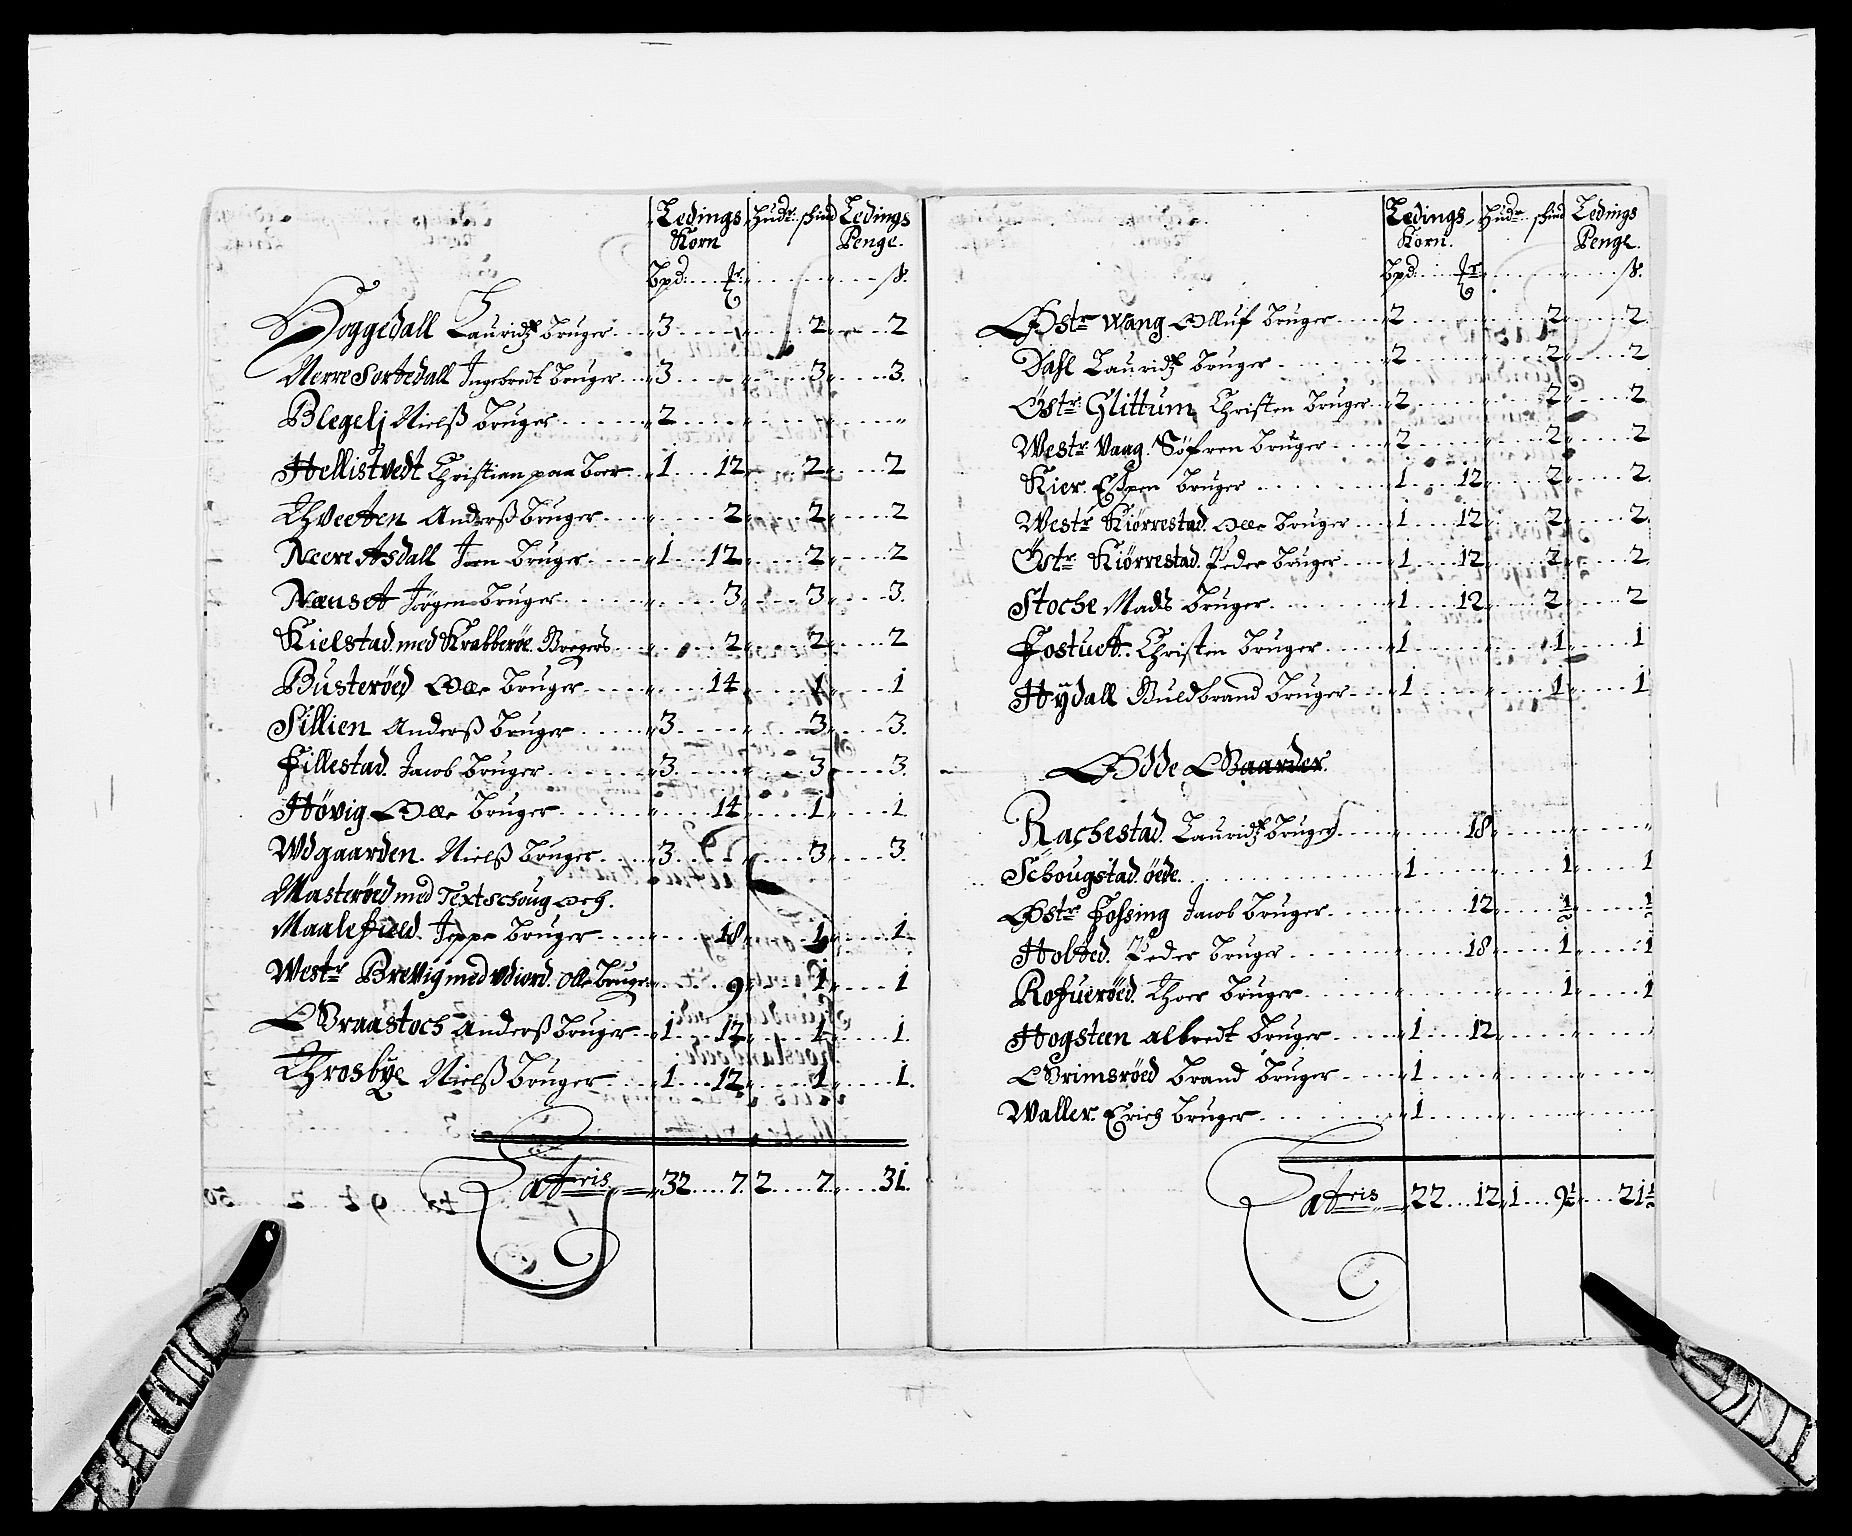 Ledings Hudr. skind Ledings
Korn Penge.
bpd: ß.
Hoggedall Lauridtz bruger 3 2 2
Nerre Sortedall Ingebredt bruger 3 3 3.
Blegelj Nielß bruger 2
Hellistvedt Christian paa boer 1 12 2 2
Thveeten Anderß bruger 2 2 2
Neere Asdall Joen bruger 1 12 2 2
Nænset Jørgen bruger 3 3 3.
Kielstad med Krabberøe. 2 2 2
Busterøed Olle bruger 14 1 1
Sillien Anderß bruger 3 3 3.
Fillestad. Jacob bruger 3 3 3.
Høvig Olle bruger 14 1 1.
Wdgaarden. Nielß bruger 3 3 3.
Masterøed med Textschoug och.
Maalefield. Jeppe bruger 18 1 1.
Westr Brevig med Vdiord. Olle bruger 9 1 1
Graastoch Anderß bruger 1 12 1 1.
Throsbye Nielß bruger 1 12 1 1.
Lateris 32 7. 2 7 31.
Ledings Hudr skind Ledings
Korn. Penge.
bpd: ß.
Østr Wang Olluf bruger 2 2 2
Dahl Lauridtz bruger 2 2 2
Østr. Glittum Christen bruger 2 2 2
Westr Vaag. Søfren bruger 2 2 2
Kier. Espen bruger 1 12 2 2
Westr Kiørrestad. Olle bruger 1 12 2 2
Østr Kiørrestad. Peder bruger 1 12 2 2
Stoche Madts bruger 1 12 2 2
Fostuet. Christen bruger 1 1 1
Hÿdall Guldbrand bruger 1 1 1
Øde Gaarder.
Rachestad. Lauridtz bruger 18
Schougstad. øede. 1 1 1
Østr Fossing Jacob bruger 12 ½ ½
Holted. Peder bruger 18 1 1
Rofuerøed. Thoer bruger 1 1
Hogsteen albredt bruger 1 12
Grimsrøed brand bruger 1
Waller. Erich bruger 1
Lateris 22 12 1 9½ 21½